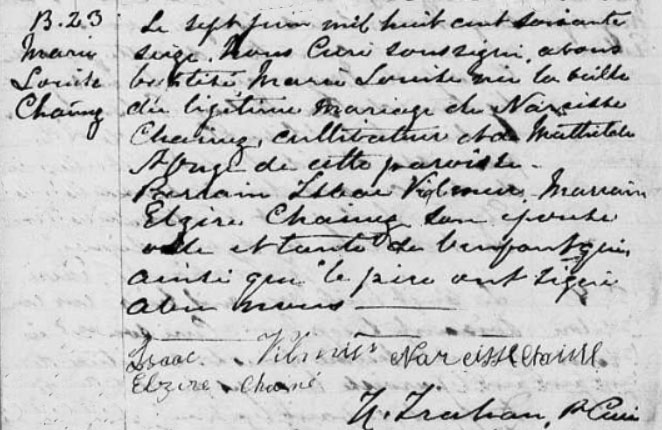 B. 23
Marie
Louise
Chainez
Le sept juin mil huit cent soixante
seize, Nous Curé soussigné, avons
baptisé, Marie Louise née la veille
du légitime mariage de Narcisse
Chainez, cultivateur et de Mathilde
de cette paroisse.
Parrain Isaac Marraine
Elzire Chainez son épouse
et tante de l'enfant qui,
ainsi que le père ont signé
avec nous
Isaac Narcisse
Elzire Chainé
N. Trahan, Ptre Curé